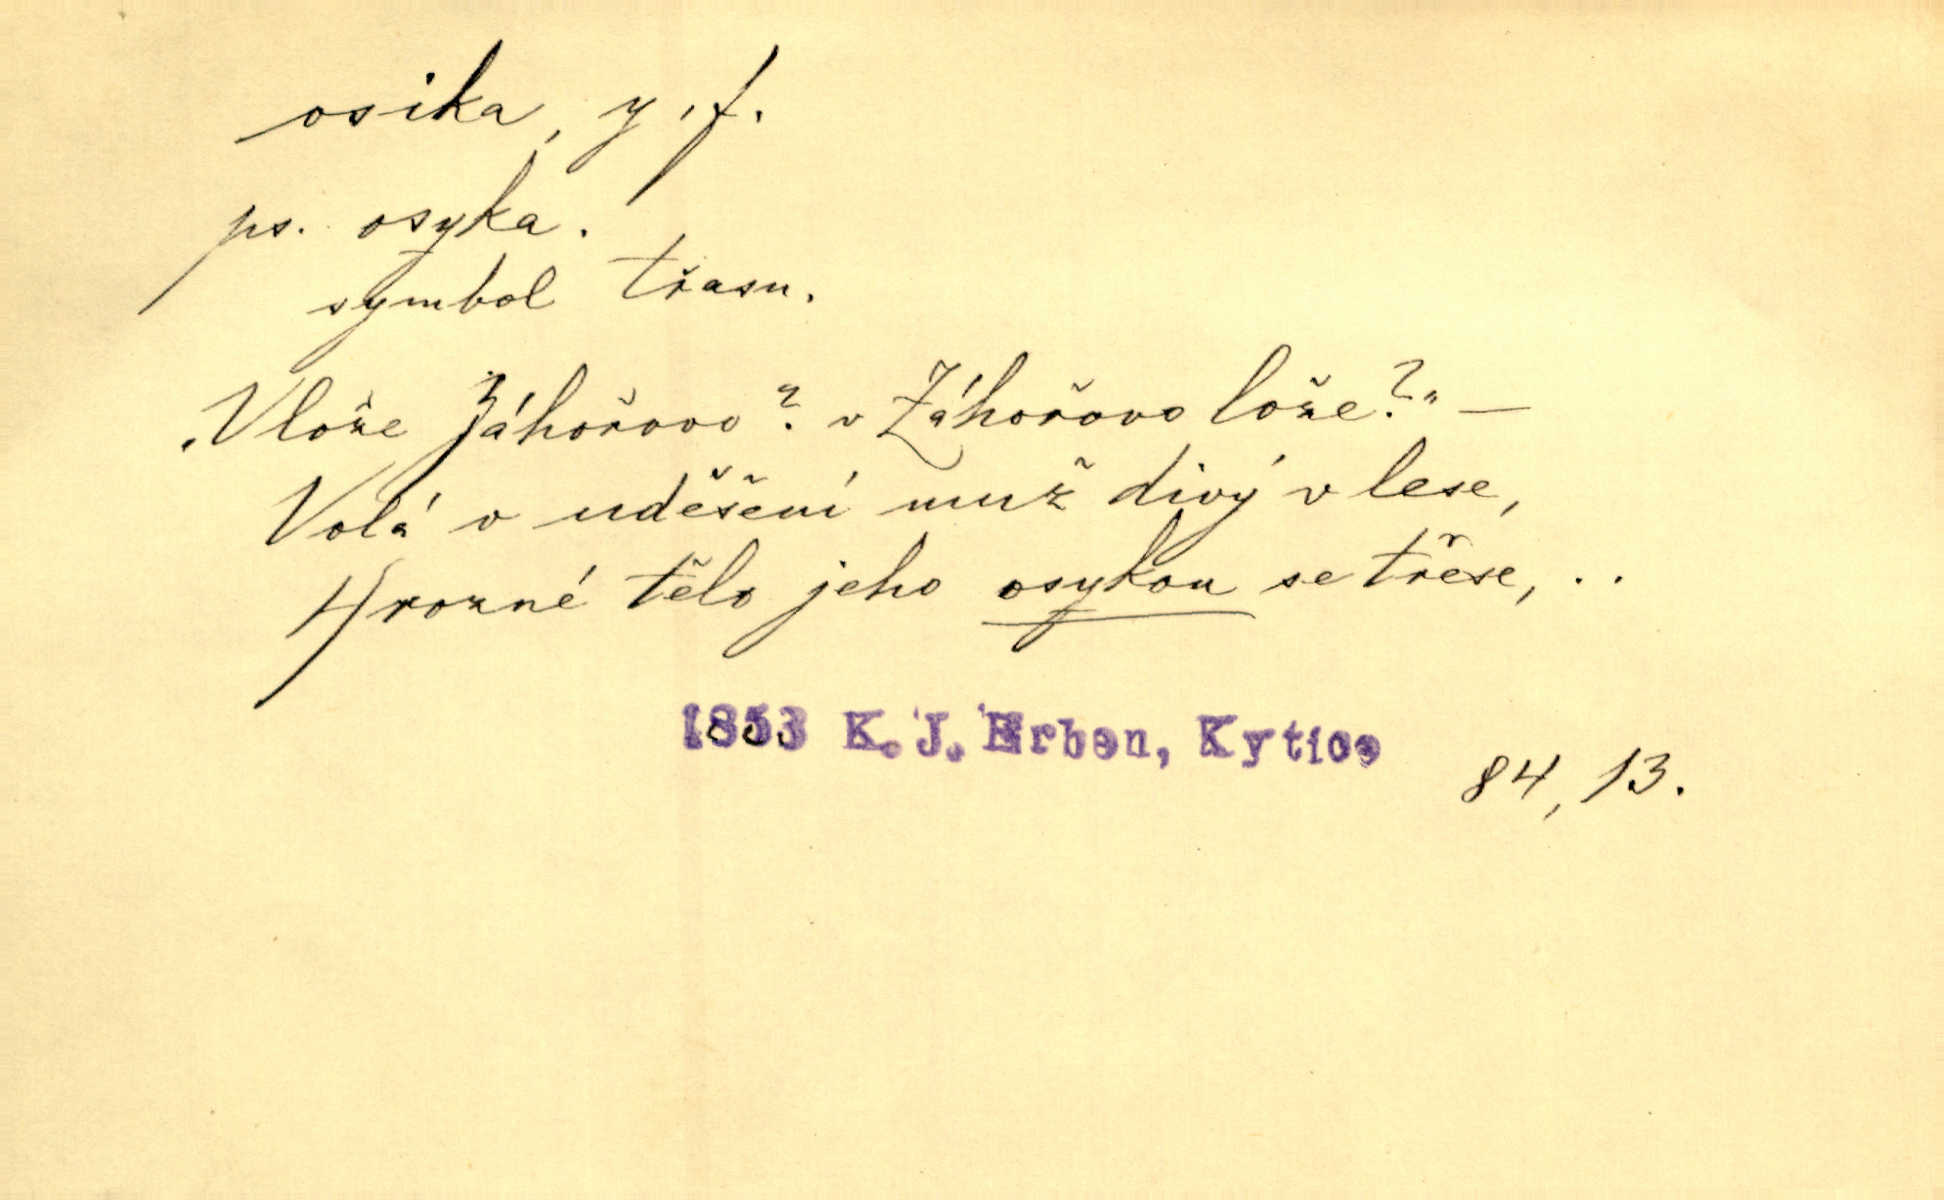 osika, y, f.
ps. osyka.
symbol třasu.
„V lože Záhořovo? v Záhořovo lože?" —
Volá v uděšení muž divý v lese,
Hrozné tělo jeho osykou se třese, . .
1853 K. J. Erben, Kytice
84, 13.